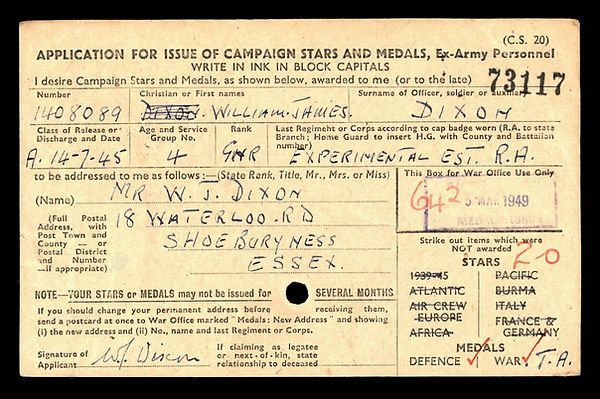 (C.S. 20)
APPLICATION FOR ISSUE OF CAMPAIGN STARS AND MEDALS, Ex-Army Personnel
WRITE IN INK IN BLOCK CAPITALS
I desire Campaign Stars and Medals, as shown below, awarded to me (or to the late)
73117
Number
Christian or First names
Surname of Officer, soldier or auxiliary
1408089
DIXON. WILLIAM. JAMES.
DIXON
Class of Release or Discharge and Date
Age and Service Group No.
Rank
Last Regiment or Corps according to cap badge worn (R.A. to state Branch; Home Guard to insert H.G. with County and Battalion number)
A. 14-7-45
4
GNR
EXPERIMENTAL EST. R.A.
to be addressed to me as follows:—(State Rank, Title, Mr., Mrs. or Miss)
This Box for War Office Use Only
(Name)
MR. W. J. DIXON
(Full Postal Address, with Post Town and County — or Postal District and Number —if appropriate)
18 WATERLOO. RD
SHOEBURYNESS
ESSEX.
642
5 MAR 1949
Strike out items which were NOT awarded
20
STARS
1939-45
PACIFIC
ATLANTIC
BURMA
AIR CREW EUROPE
ITALY
AFRICA
FRANCE & GERMANY
MEDALS
DEFENCE
WAR
T.A.
NOTE—YOUR STARS or MEDALS may not be issued for SEVERAL MONTHS
If you should change your permanent address before receiving them,
send a postcard at once to War Office marked "Medals: New Address" and showing
(i) the new address and (ii) No., name and last Regiment or Corps.
Signature of Applicant
W.J. Dixon
If claiming as legatee or next-of-kin, state relationship to deceased